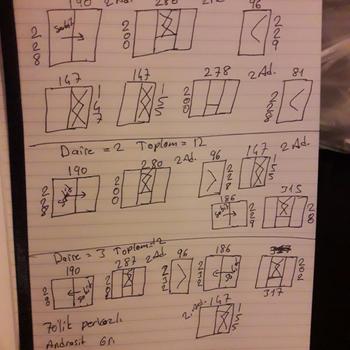 190 2 Ad. 280 212 96
228 Sabit 200 229
147 147 278 2 Ad. 81
147 155 200 228
Daire = 2 Toplam = 12
190 280 2 Ad. 96 147 2 Ad.
228 Sabit 200 228 155
186 315
229 228
Daire = 3 Toplam = 12
190 287 2 Ad. 96 186
228 Sabit 200 232 202
317
70'lik perkazlı 2 Ad. 147
Andrasit Gri 155